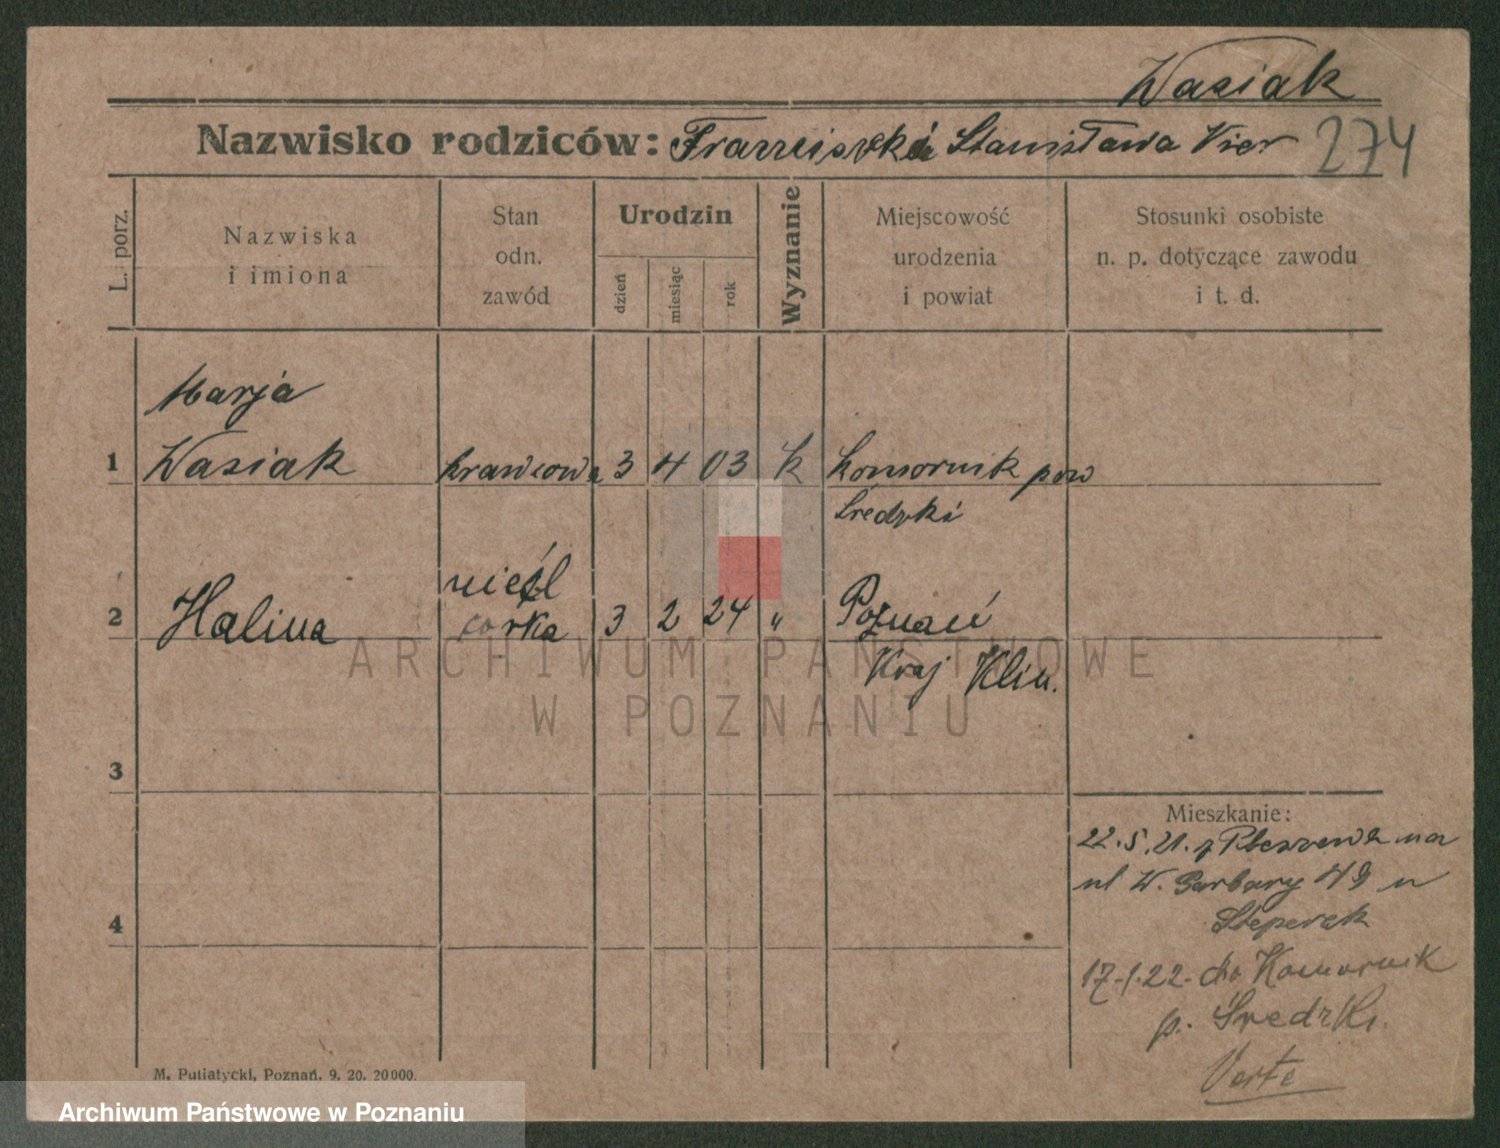 Wasiak
Nazwisko rodziców: Franciszka Stanisława Vier 274
L. porz.
Nazwiska
i imiona
Stan
odn.
zawód
Urodzin
dzień
miesiąc
rok
Wyznanie
Miejscowość
urodzenia
i powiat
Stosunki osobiste
n. p. dotyczące zawodu
i t. d.
Marja
1 Wasiak krawcowa 3 4 03 k Komornik pow
Średzki
nieśl
2 Halina corka 3 2 24 " Poznań
Kraj Klin.
3
4
Mieszkanie:
22.5.21. z na
ul W. Garbary 49 u
17.1.22. do Komornik
p. Średzki.
Verte
M. Putiatycki, Poznań. 9. 20. 20000.
ARCHIWUM PAŃSTWOWE
W POZNANIU
Archiwum Państwowe w Poznaniu